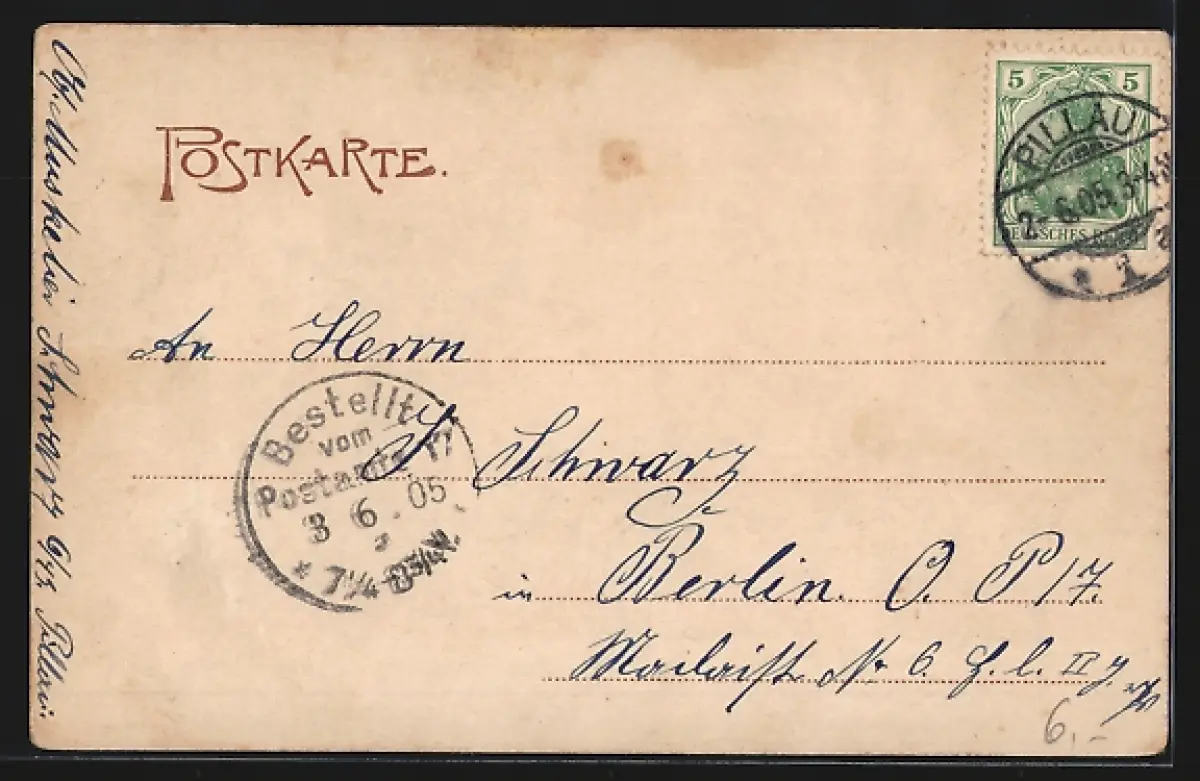 POSTKARTE.
5 5
PILLAU
2. 6. 05. 3-4N
DEUTSCHES REICH
* 1
An Herrn
Bestellt
vom
Postamte 17
3 6. 05
7¼-8¾V.
S Schwarz
in Berlin. O. P 17.
No 6 II
6.-
Musketier Schwarz 6/43 Pillau.